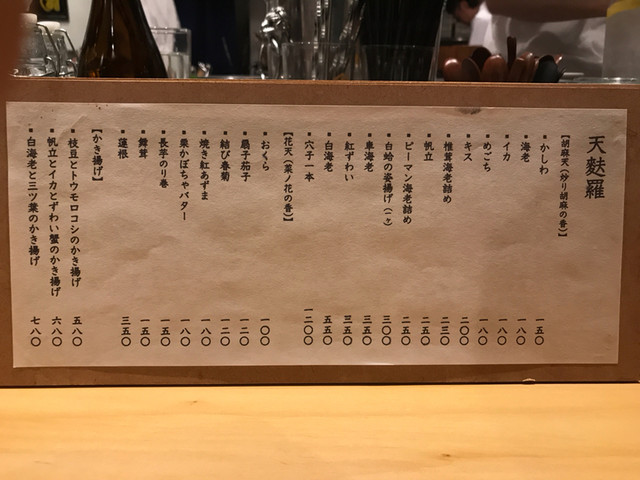 天麩羅
【胡麻天(炒り胡麻の香)】
▪かしわ 一五〇
▪海老 一八〇
▪イカ 一八〇
▪めごち 一八〇
▪キス 二〇〇
▪椎茸海老詰め 二三〇
▪帆立 二五〇
▪ピーマン海老詰め 二五〇
▪白蛤の姿揚げ(二ヶ) 三〇〇
▪車海老 三五〇
▪紅ずわい 三五〇
▪白海老 五五〇
▪穴子一本 一二〇〇
【花天(菜ノ花の香)】
▪おくら 一〇〇
▪扇子茄子 一二〇
▪結び春菊 一二〇
▪焼き紅あずま 一八〇
▪栗かぼちゃバター 一八〇
▪長芋のり巻 一五〇
▪舞茸 一五〇
▪蓮根 三五〇
【かき揚げ】
▪枝豆とトウモロコシのかき揚げ 五八〇
▪帆立とイカとずわい蟹のかき揚げ 六八〇
▪白海老と三ツ葉のかき揚げ 七八〇